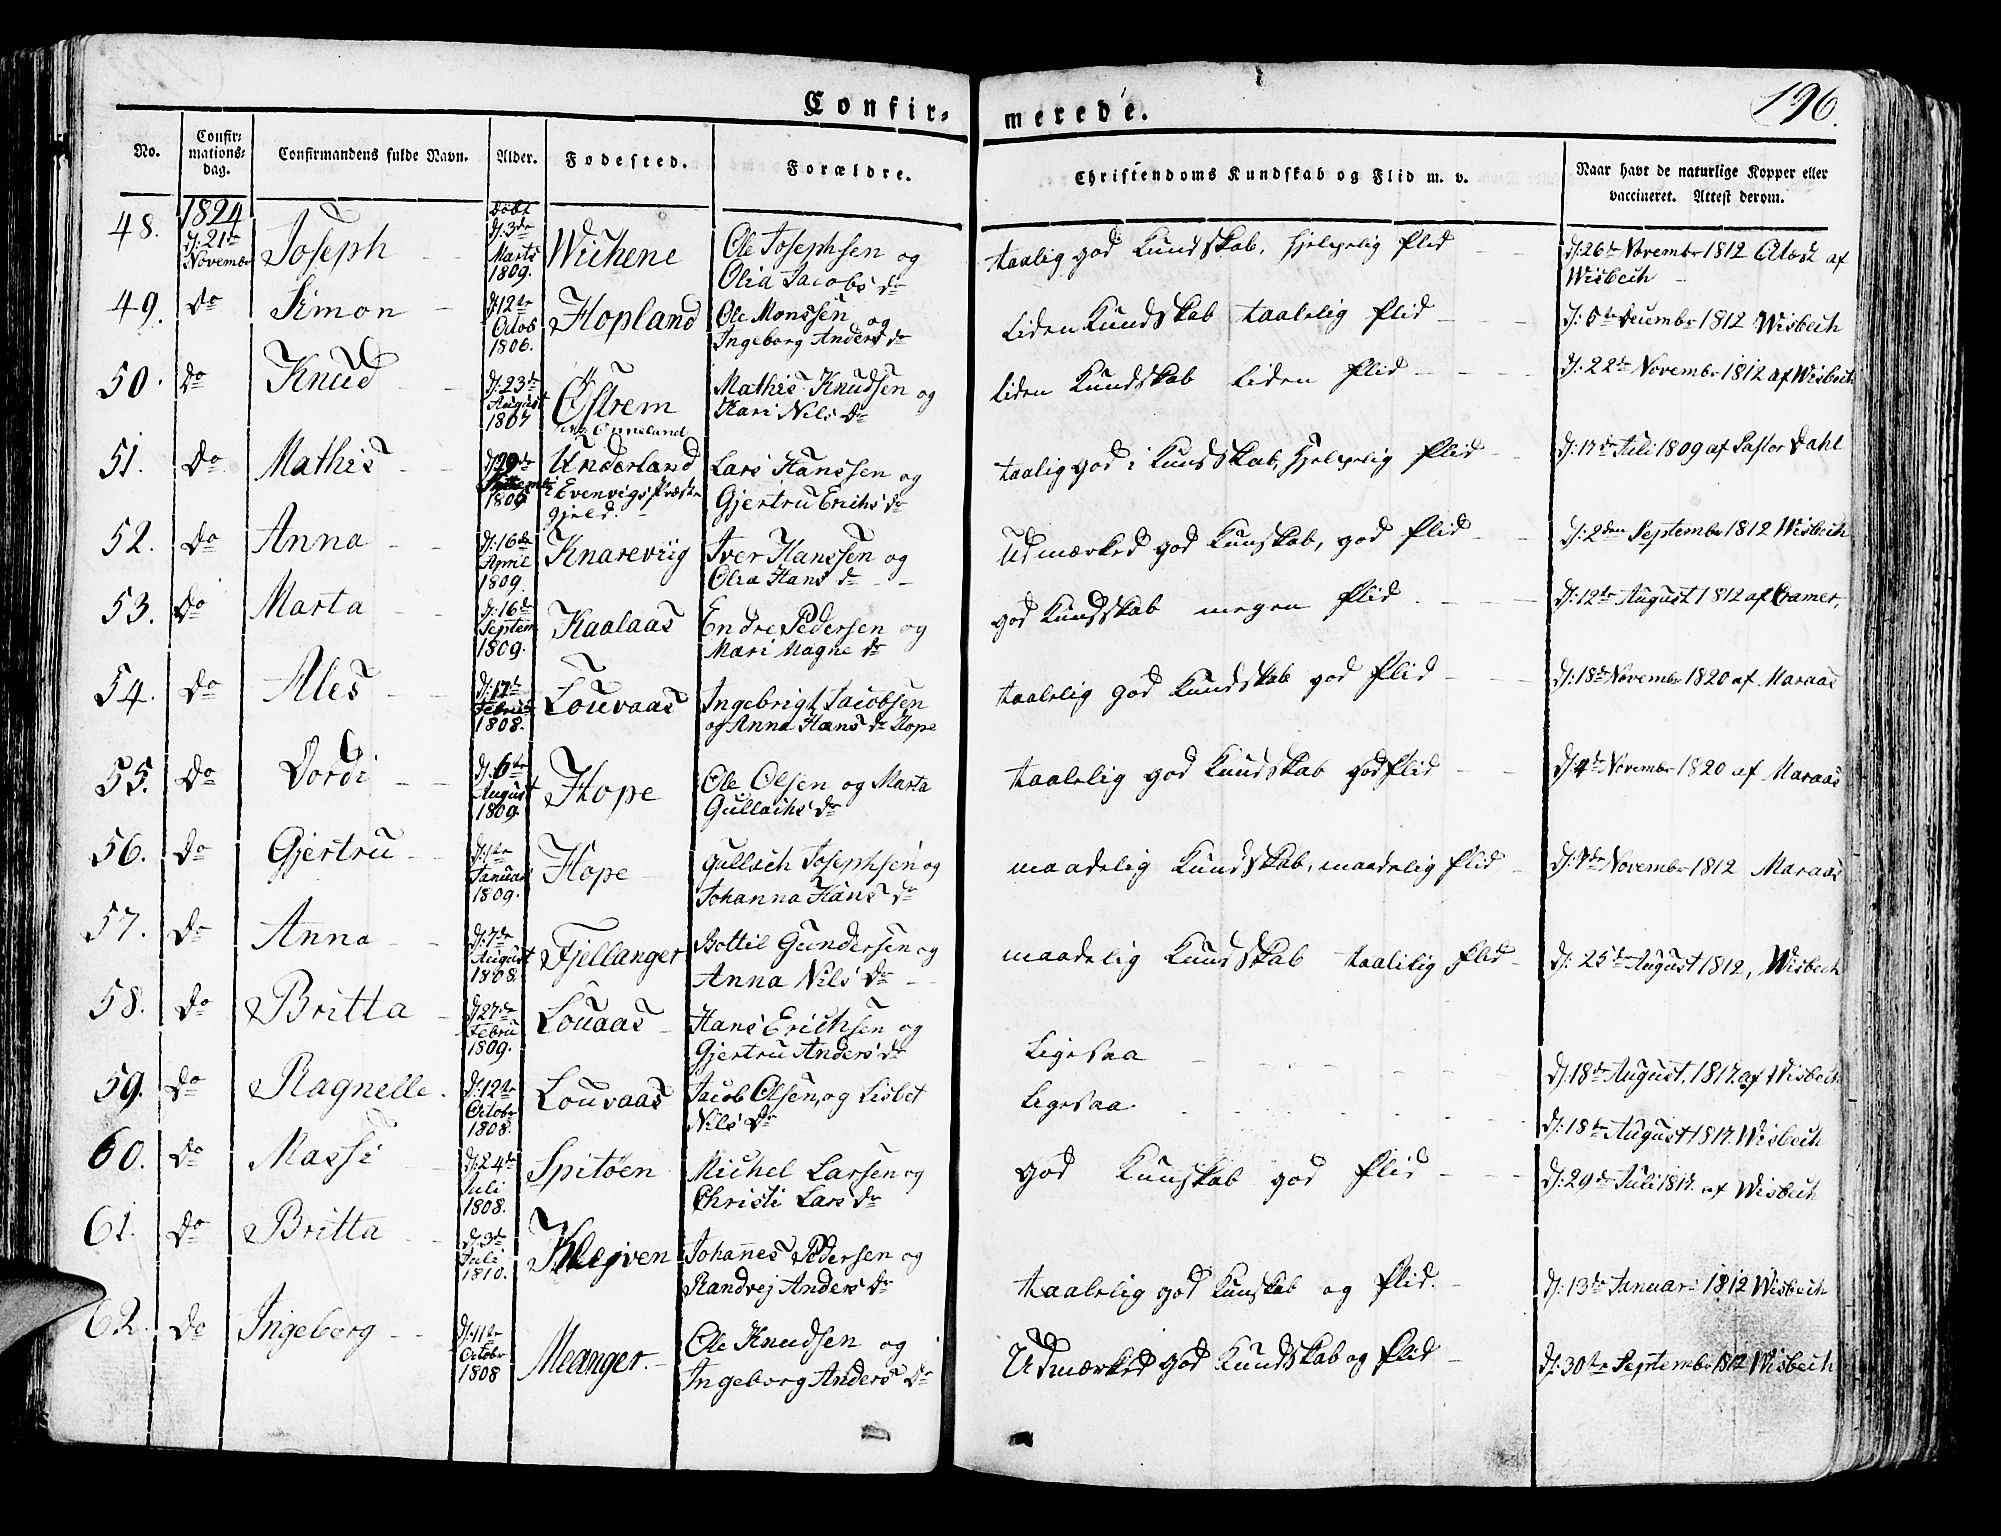 196.
Confirmerede.
No.
Confirmations-dag.
Confirmandens fulde Navn.
Alder.
Fødested.
Forældre.
Christendoms Kundskab og Flid m. v.
Naar havt de naturlige Kopper eller vaccineret. Attest derom.
48. 1824 d: 21de Novembr Joseph døbt d: 3de Marts 1809. Wichene Ole Josephsen og Olia Jacobs dr taalig god Kundskab, hjelpelig flid d: 26de Novembr 1812 Atest af Wisbech
49. do Simon d: 12te Octob 1806. Hopland Ole Monssen og Ingeborg Anders dr liden Kundskab taalelig flid d: 6te Decembr 1812 Wisbech
50. do Knud d: 23de August 1807 Østrem Mathis Knudsen og Kari Nils dr liden Kundskab liden flid d: 22de Novembr 1812 af Wisbech
51. do Mathis Underland i Evenvigs Præstegjeld. Lars Hanssen og Gjertru Erichs dr taalig god i Kundskab, hjelpelig flid d: 17de Juli 1809 af Pastor Dahl
52. do Anna d: 16de April 1809. Knareviig Iver Hanssen og Olia Hans dr Udmærked god Kunskab, god flid d: 2den Septembr 1812 Wisbech
53. do Marta d: 16de Septem 1809. Kaalaas Endre Pedersen og Mari Magne dr god Kundskab megen flid d: 12te August 1812 af Cramer,
54. do Ales d: 17de Febru 1808. Louvaas Ingebrigt Jacobsen og Anna Hans dr Hope taalelig god Kundskab god flid d: 18de Novembr 1820 af Maraas
55. do Dordi d: 6te August 1809. Hope Ole Olsen og Marta Gullachs dr taalelig god Kundskab god flid d: 4de Novembr 1820 af Maraas
56. do Gjertru d: 1te Januar 1809. Hope Gullach Josephsen og Johanna Hans dr maadelig Kundskab, maadelig flid Novembr 1812 Maraas
57. do Anna d: 7de August 1808. Fjellanger Bottil Gundersen og Anna Nils dr maadelig Kundskab taalilig flid d: 25de August 1812, Wisbech
58. do Britta d: 27de Febru 1809. Louaas Hans Erichsen og Gjertru Anders dr Ligesaa d: 18de August, 1817. af Wisbech
59. do Ragnelle. d: 12te Octobr 1808. Louvaas Jacob Olsen, og Lisbet Nils dr Ligesaa d: 18de August 1817. Wisbech
60. do Massi d: 24de Juli 1808. Spitøen Michel Larsen og Christi Lars dr god Kunskab god flid d: 29de Juli 1817. af Wisbech
61. do Britta d: 3de Juli 1810. Klejven Johannes Pedersen og Randvej Anders dr taalelig god Kunskab og flid. d: 13de Januari 1812 Wisbech
62. do Ingeborg d: 11te Octobr 1808 Meanger. Ole Knudsen og Ingeborg Anders dr Udmærked god Kundskab og flid d: 30te Septembr 1812 Wisbech